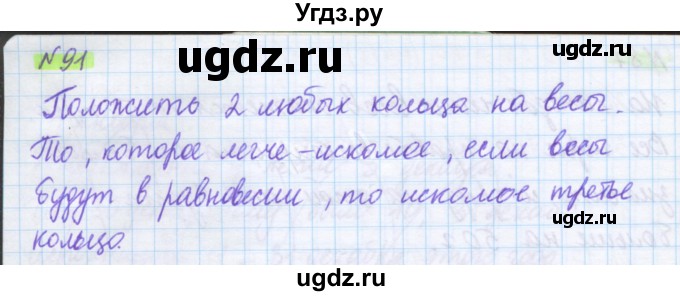 Угдз.ру
№91
Положить 2 любых кольца на весы.
То, которое легче - искомое, если весы
будут в равновесии, то искомое третье
кольцо.
ugdz.ru
ugdz.ru
ugdz.ru
ugdz.ru
ugdz.ru
ugdz.ru
ugdz.ru